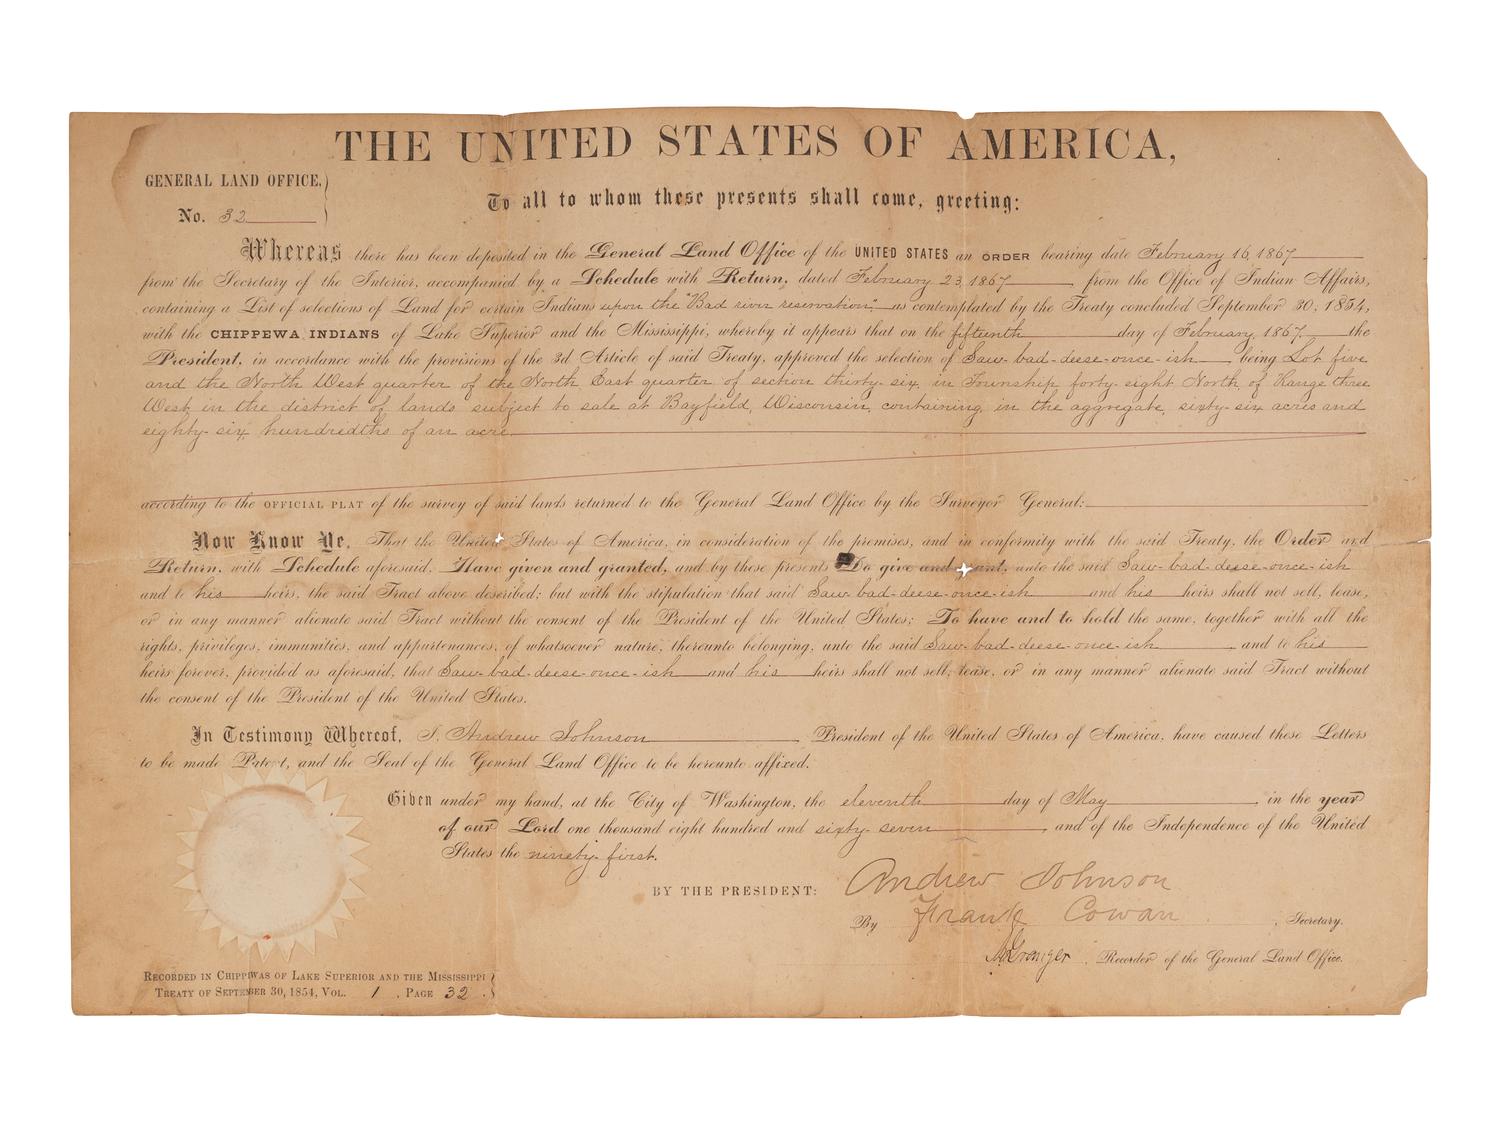 THE UNITED STATES OF AMERICA,
GENERAL LAND OFFICE,
No. 32
To all to whom these presents shall come, greeting:
Whereas there has been deposited in the General Land Office of the UNITED STATES an ORDER bearing date February 16, 1867
from the Secretary of the Interior, accompanied by a Schedule with Return, dated February 23, 1867, from the Office of Indian Affairs,
containing a List of selections of Land for certain Indians upon the "Bad river reservation", as contemplated by the Treaty concluded September 30, 1854,
with the CHIPPEWA INDIANS of Lake Superior and the Mississippi, whereby it appears that on the fifteenth day of February, 1867 the
President, in accordance with the provisions of the 3d Article of said Treaty, approved the selection of Saw-bad-deese-once-ish being Lot five
and the North West quarter of the North East quarter of section thirty-six, in Township forty-eight North, of Range three
West, in the district of lands subject to sale at Bayfield, Wisconsin, containing in the aggregate, sixty-six acres and
eighty-six hundredths of an acre
according to the OFFICIAL PLAT of the survey of said lands returned to the General Land Office by the Surveyor General:
Now Know Ye, That the United States of America, in consideration of the premises, and in conformity with the said Treaty, the Order and
Return, with Schedule aforesaid, Have given and granted, and by these presents Do give and ant, unto the said Saw-bad-deese-once-ish
and to his heirs, the said Tract above described; but with the stipulation that said Saw-bad-deese-once-ish and his heirs shall not sell, lease,
or in any manner alienate said Tract without the consent of the President of the United States; To have and to hold the same, together with all the
rights, privileges, immunities, and appurtenances, of whatsoever nature, thereunto belonging, unto the said Saw-bad-deese-once-ish and to his
heirs forever, provided as aforesaid, that Saw-bad-deese-once-ish and his heirs shall not sell, lease, or in any manner alienate said Tract without
the consent of the President of the United States.
In Testimony Whereof, I, Andrew Johnson, President of the United States of America, have caused these Letters
to be made Patent, and the Seal of the General Land Office to be hereunto affixed.
Given under my hand, at the City of Washington, the eleventh day of May, in the year
of our Lord one thousand eight hundred and sixty-seven, and of the Independence of the United
States the ninety-first.
BY THE PRESIDENT: Andrew Johnson
By Frank Cowan, Secretary.
Granger, Recorder of the General Land Office.
RECORDED IN CHIPPEWAS OF LAKE SUPERIOR AND THE MISSISSIPPI
TREATY OF SEPTEMBER 30, 1854, VOL. 1, PAGE 32.